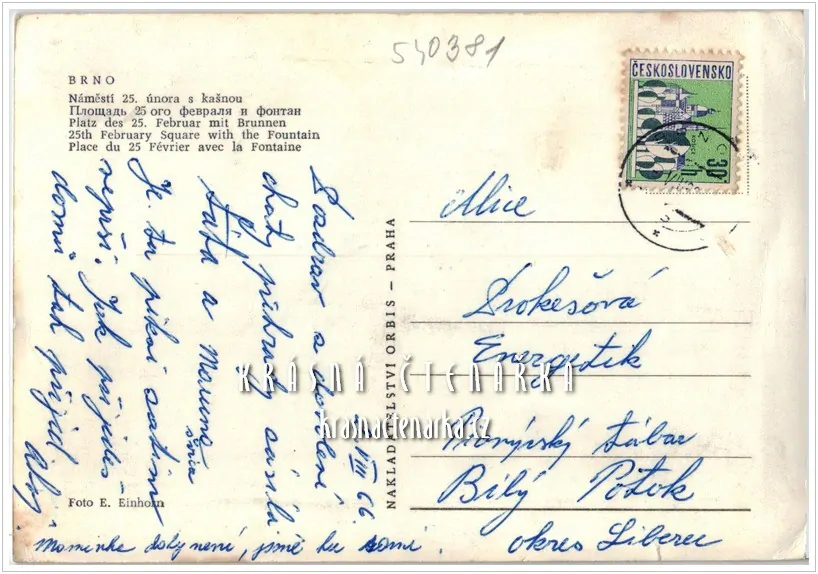 540381
BRNO
Náměstí 25. února s kašnou
Площадь 25 ого февраля и фонтан
Platz des 25. Februar mit Brunnen
25th February Square with the Fountain
Place du 25 Février avec la Fontaine
ČESKOSLOVENSKO
30
h
Pozdrav z dovolení
chaty přehrady zasílá
Táta a Maruna
8. VIII 66
Je tu pěkně
nepší. Jak přijedeš
domů tak přijď.
Maminka doby není, jsme tu sami.
Foto E. Einhorn
NAKLADATELSTVÍ ORBIS — PRAHA
Alice
Prokešová
Energetik
Pionýrský tábor
Bílý Potok
okres Liberec
KRÁSNÁ ČTENÁŘKA
krasnactenarka.cz